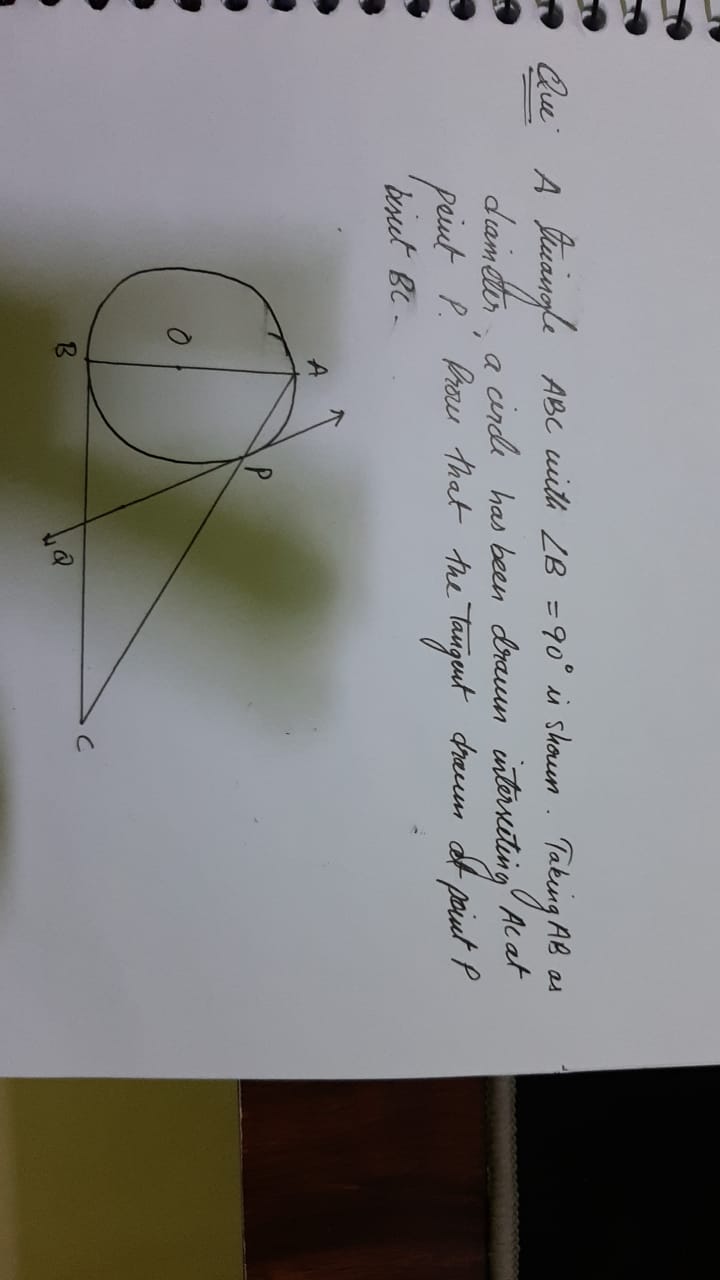 Que: A triangle ABC with ∠B = 90° is shown. Taking AB as
diameter, a circle has been drawn interseting AC at
point P. Prove that the Tangent drawn at point P
bisect BC.
A
P
O
B
Q
C